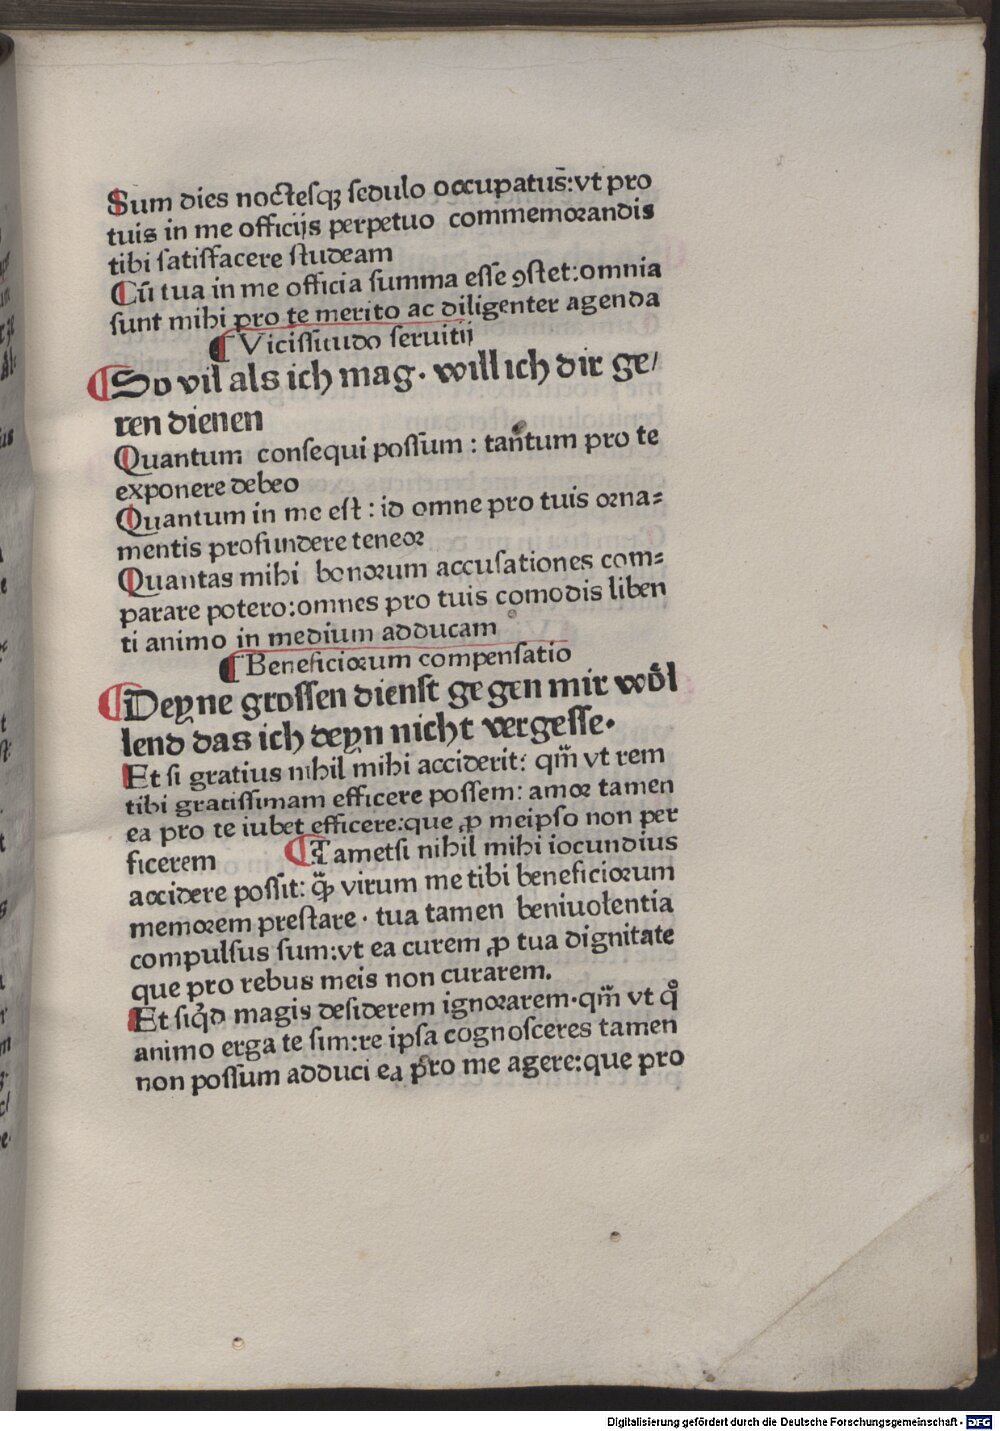 Sum dies noctesqꝫ sedulo occupatus̄: vt pro
tuis in me officijs perpetuo commemorandis
tibi satisfacere studeam
Cū tua in me officia summa esse ꝯstet: omnia
sunt mihi pro te merito ac diligenter agenda
¶ Vicissitudo seruitij
¶ So vil als ich mag. will ich dir ge/
ren dienen
Quantum consequi possum : tantum pro te
exponere debeo
Quantum in me est : id omne pro tuis orna⸗
mentis profundere teneor
Quantas mihi bonorum accusationes com⸗
parare potero: omnes pro tuis comodis liben
ti animo in medium adducam
¶ Beneficiorum compensatio
¶ Deyne grossen dienst gegen mir wöl
lend das ich deyn nicht vergesse.
Et si gratius nihil mihi acciderit: qm̄ vt rem
tibi gratissimam efficere possem: amor tamen
ea pro te iubet efficere: que ꝓ meipso non per
ficerem ¶ Tametsi nihil mihi iocundius
accidere possit: q̄ꝫ virum me tibi beneficiorum
memorem prestare. tua tamen beniuolentia
compulsus sum: vt ea curem ꝓ tua dignitate
que pro rebus meis non curarem.
Et siqͥd magis desiderem ignorarem. qm̄ vt qͦ
animo erga te sim: re ipsa cognosceres tamen
non possum adduci ea pro me agere: que pro
Digitalisierung gefördert durch die Deutsche Forschungsgemeinschaft - DFG